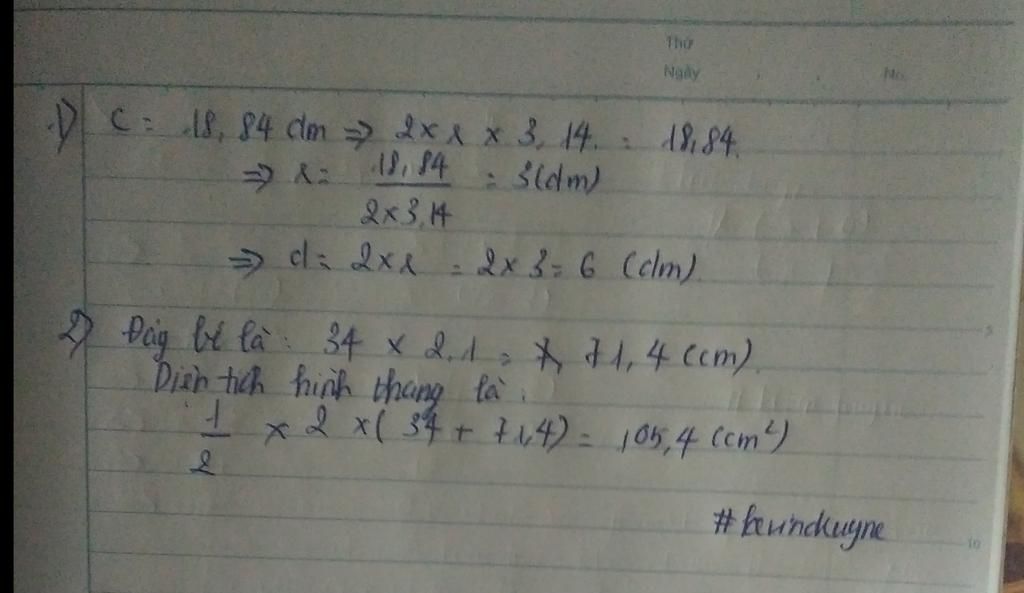 Thứ
Ngày No.
1) C = 18,84 dm => 2 x r x 3,14 = 18,84
=> r = 18,84 / 2x3,14 = 3(dm)
=> d = 2 x r = 2 x 3 = 6 (dm)
2) Đáy bé là: 34 x 2,1 = 71,4 (cm)
Diện tích hình thang là:
1/2 x 2 x (34 + 71,4) = 105,4 (cm²)
5
10